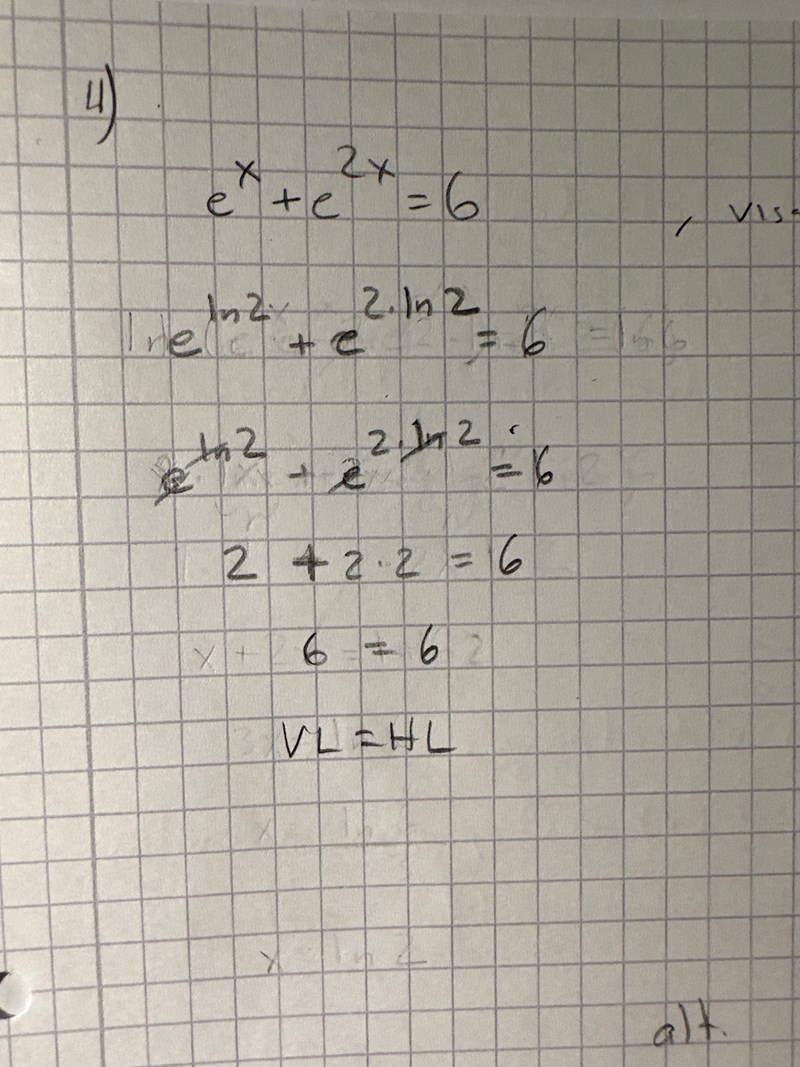 4)
e^x + e^2x = 6 , vis
e^ln2 + e^2·ln2 = 6
e^ln2 + e^2·ln2 = 6
2 + 2·2 = 6
6 = 6
VL = HL
alt.